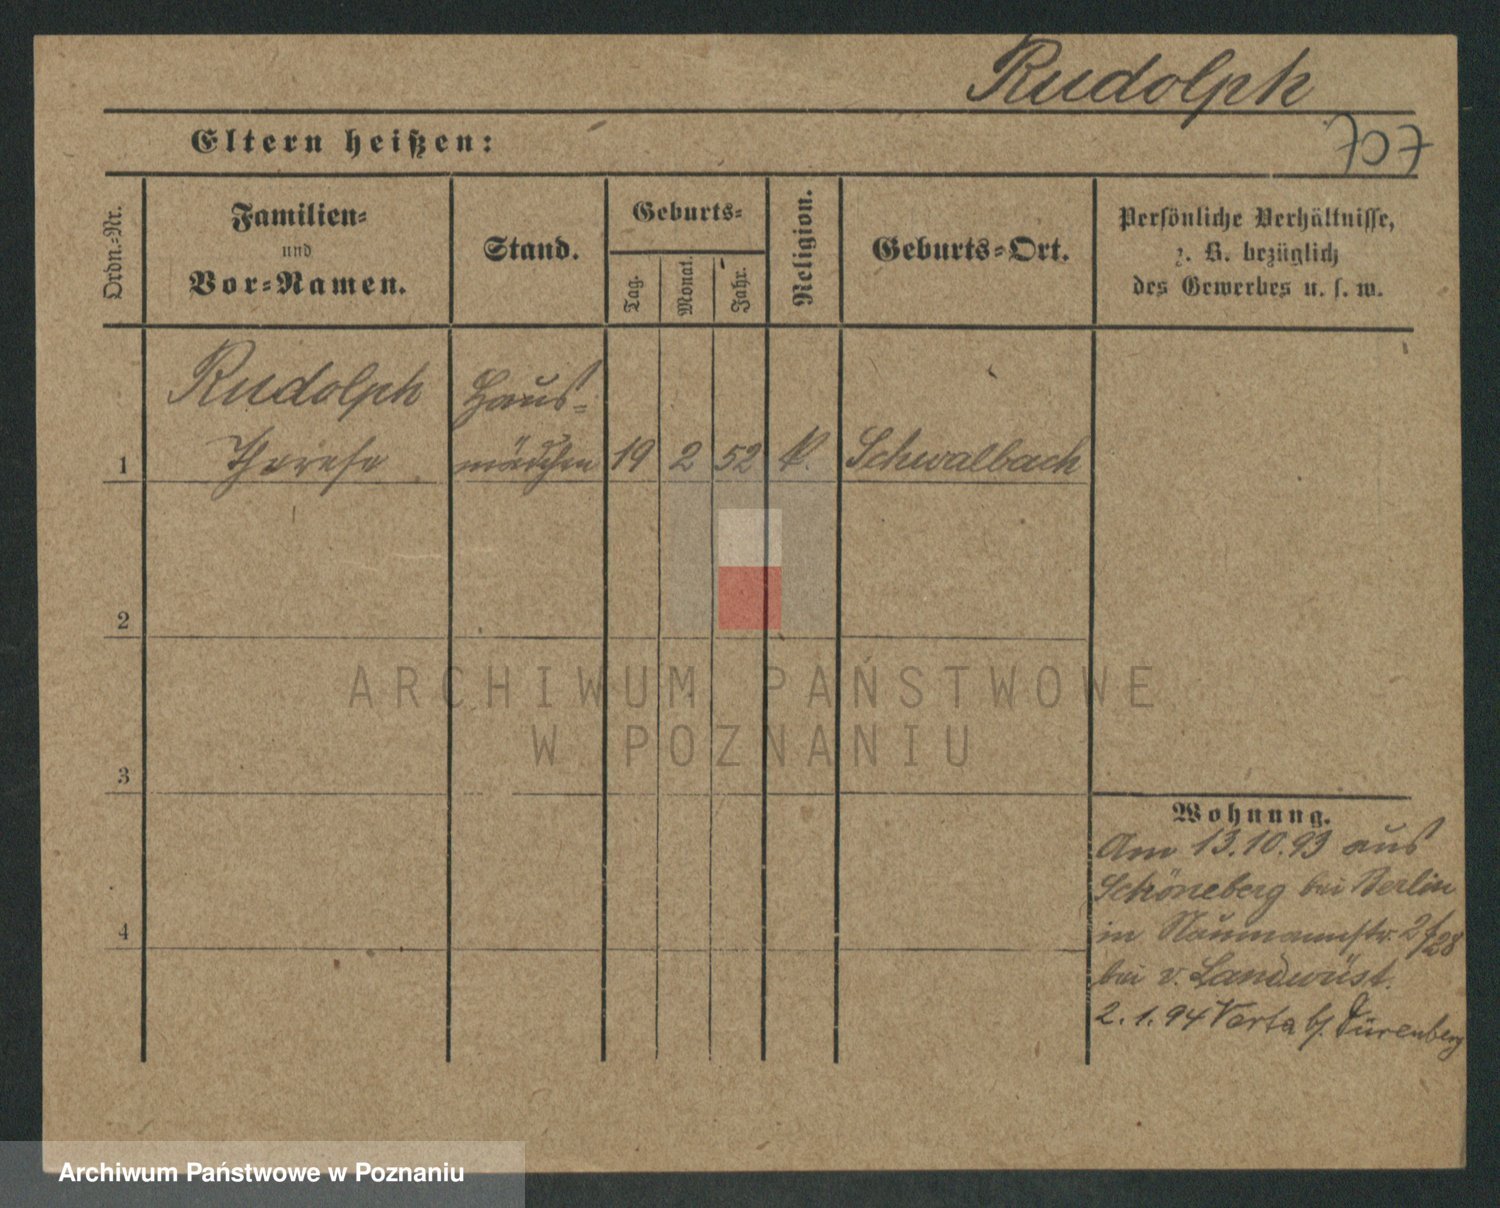 Rudolph
707
Eltern heißen:
Ordn.-Nr.
Familien-
und
Vor-Namen.
Stand.
Geburts-
Tag.
Monat.
Jahr.
Religion.
Geburts-Ort.
Persönliche Verhältnisse,
z. B. bezüglich
des Gewerbes u. s. w.
Rudolph Haus-
1 Therese mädchen 19 2 52 k. Schwalbach
2
3
4
Wohnung.
Am 13.10.93 aus
Schöneberg bei Berlin
in Naumannstr. 2/28
bei v. Landwüst.
2.1.94 Varta b/. Dürenberg
ARCHIWUM PAŃSTWOWE
W POZNANIU
Archiwum Państwowe w Poznaniu